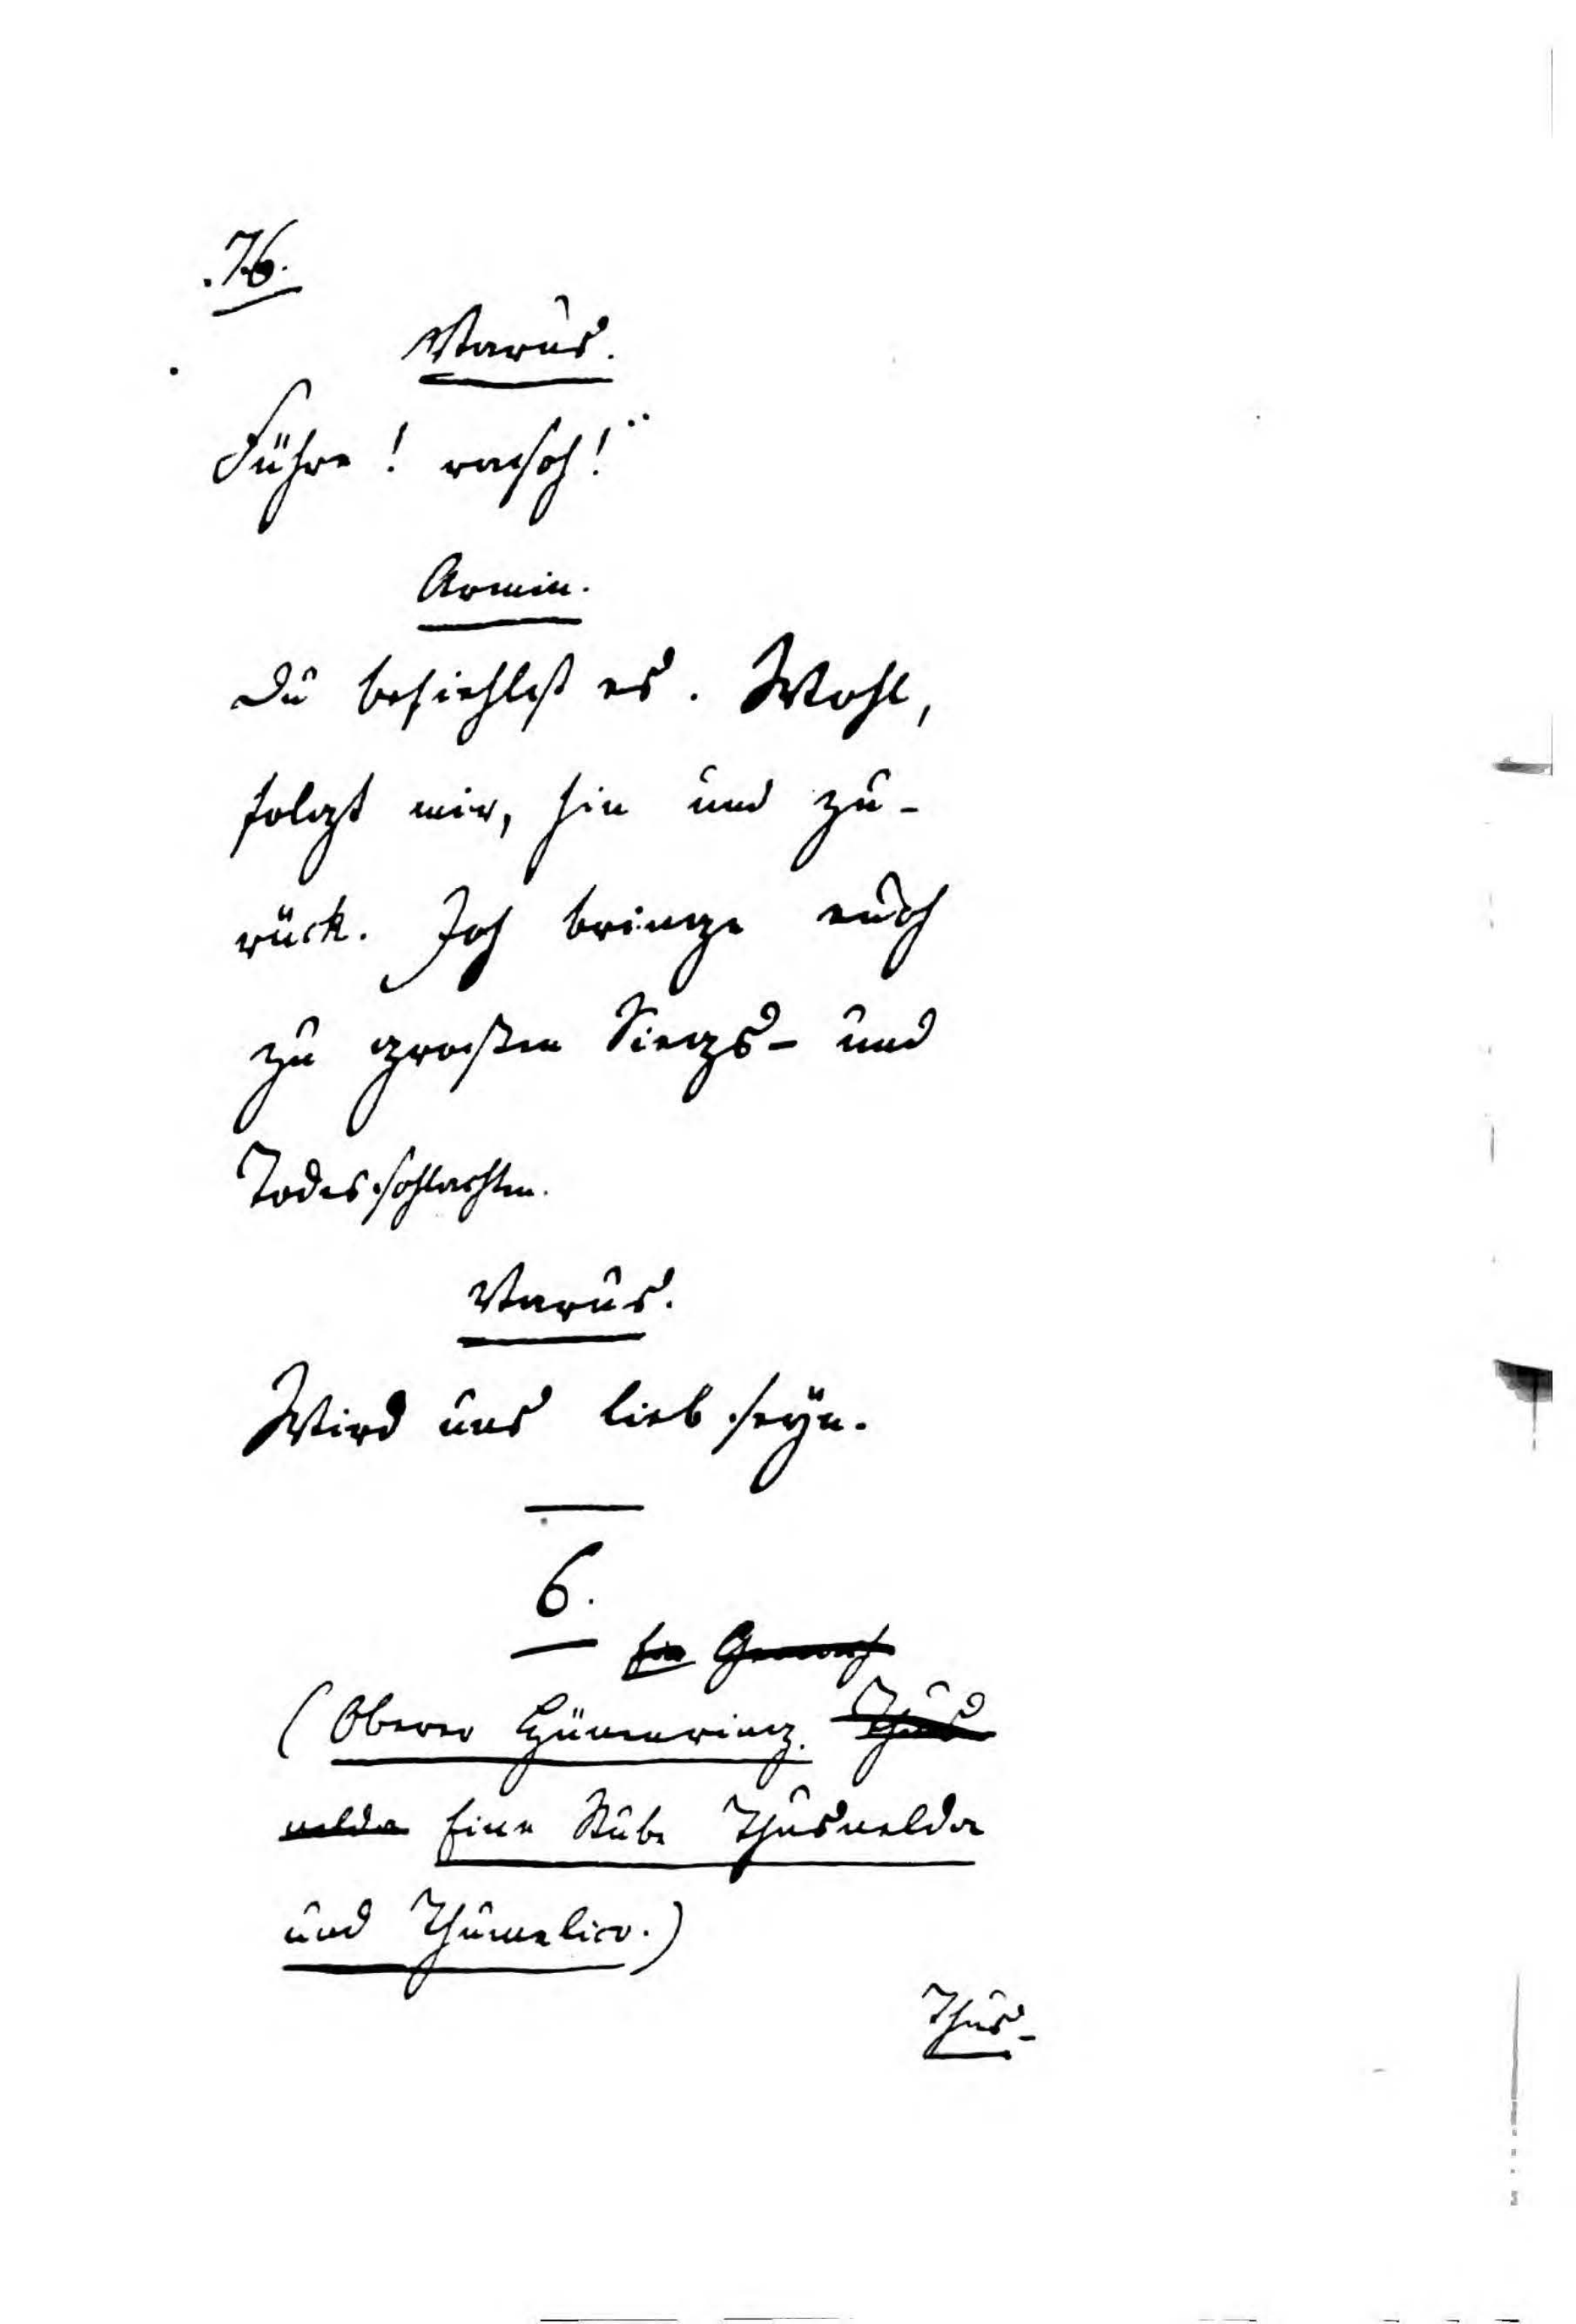 76.
Varus.
Führe! rasch!
Armin.
Du befiehlst es. Wohl,
folgt mir, hin und zu-
rück. Ich bringe euch
zu großen Siegs- und
Todesschlachten.
Varus.
Wird uns lieb seyn.
6.
Ein Gemach
(Oberer Hünenring. Thus
nelda Eine Stube Thusnelda
und Thumelico.)
Thus-